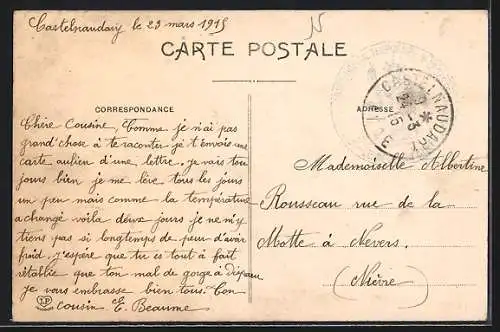 Castelnaudary le 23 mars 1915
CARTE POSTALE
CORRESPONDANCE
ADRESSE
CASTELNAUDARY
Chère Cousine, Comme je n'ai pas
grand'chose à te raconter je t'envois une
carte aulieu d'une lettre, je vais tou
jours bien je me lève tous les jours
un peu mais comme la température
a changé voila deux jours je ne m'y
tiens pas si longtemps de peur d'avoir
froid. j'espère que tu es tout à fait
rétablie que ton mal de gorge a disparu
je vous embrasse bien tous. Ton
cousin E. Beaume
Mademoiselle Albertine
Rousseau rue de la
Motte à Nevers.
(Nièvre)